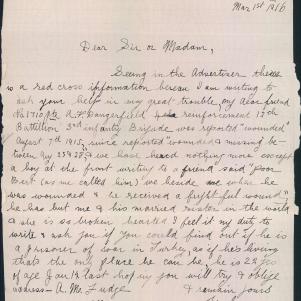 Mar 1st 1916
Dear Sir or Madam,
Seeing in the Advertiser there
is a red cross information bureau I am writing to
ask your help in my great trouble, my dear friend
No 1710 Pte A. F. Dangerfield reinforcement 12th
Battalion 3rd Infantry Brigade was reported "wounded"
August 7th 1915, since reported wounded & missing be-
tween Aug & we have heard nothing more except
a boy at the front writing to a friend said "poor
Bert (as we called him) was beside me when he
was wounded & he received a frightful wound"
he has but one & his married sister in the world
& she is so broken hearted I feel it my duty to
write & ask you if you could find out if he is
a prisoner of war in Turkey, as if he's living
thats the only place he can be, he is 23 yrs
of age Jan 18 last hoping you will try & oblige
address - A. M. Fudge & remain yours